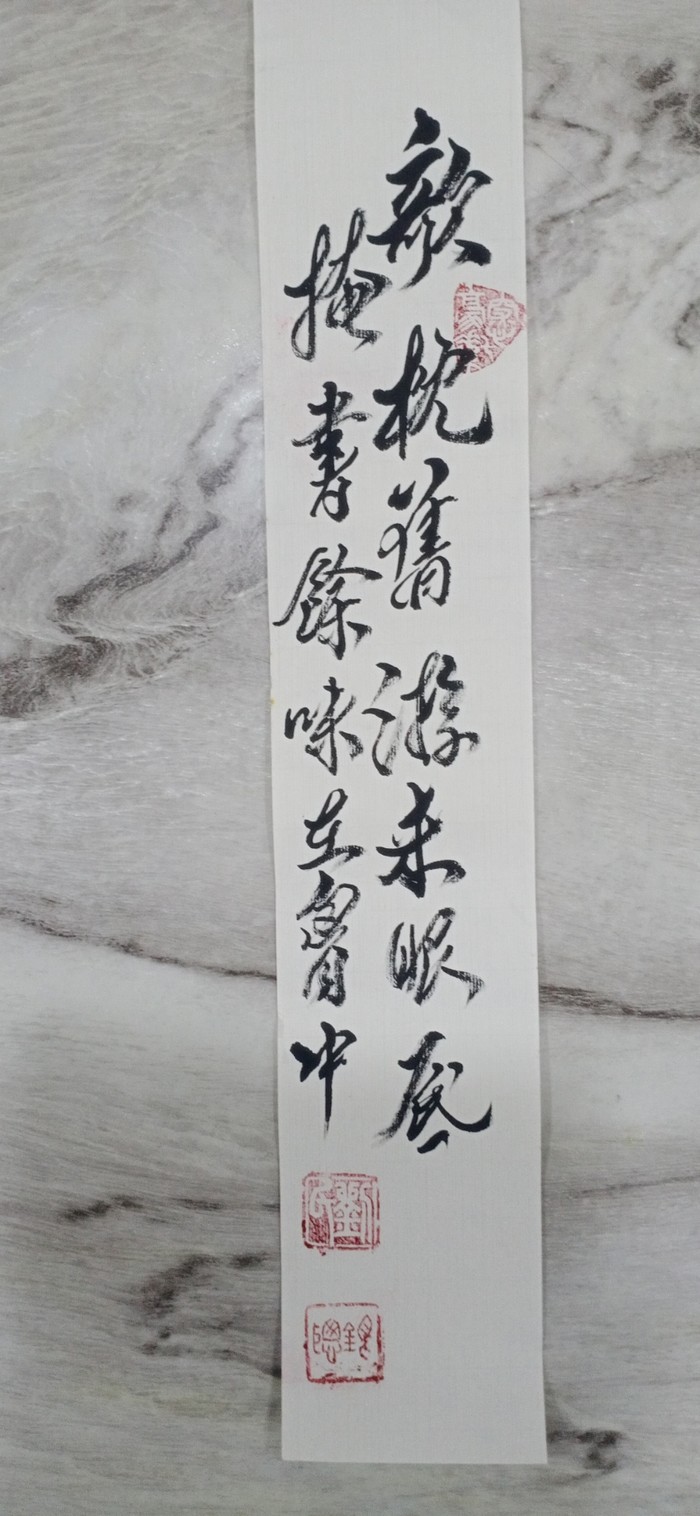 欹枕舊游来眼底
掩書餘味在胷中
劉